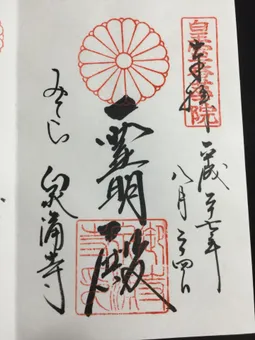 皇室香華院
奉拝
平成二十七年
八月二四日
霊明殿
みてら 泉涌寺